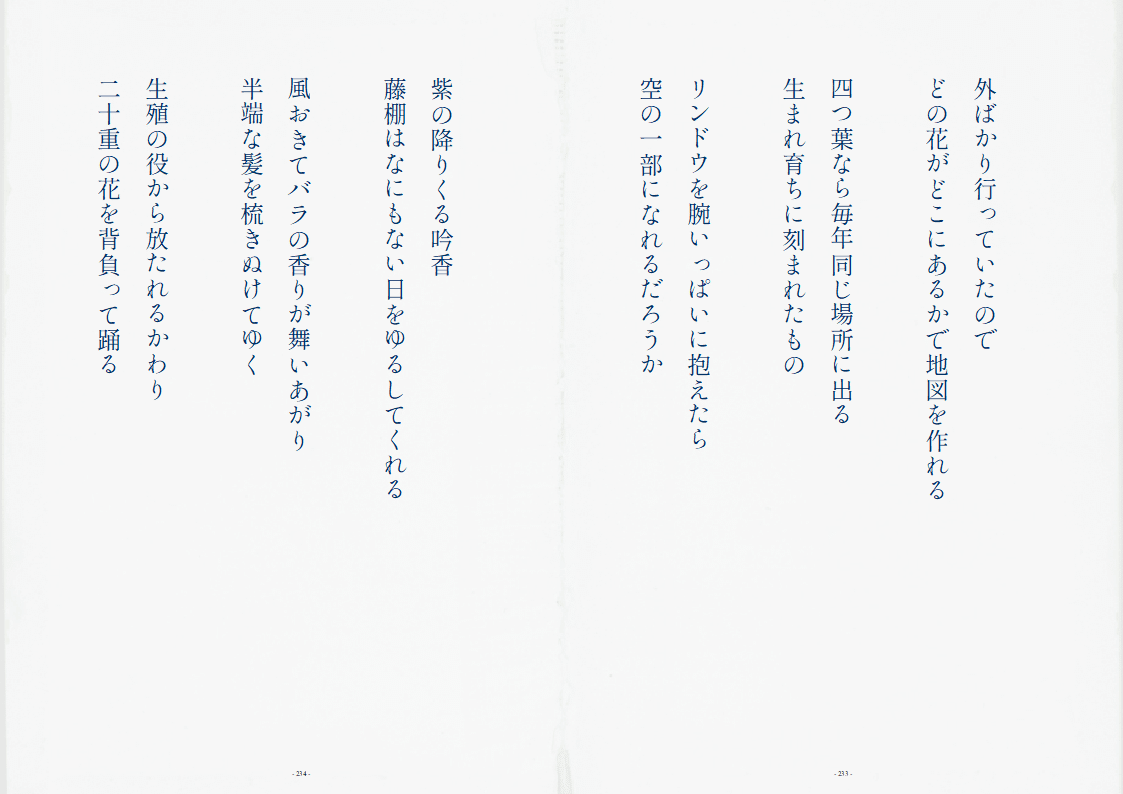 外ばかり行っていたので
どの花がどこにあるかで地図を作れる
四つ葉なら毎年同じ場所に出る
生まれ育ちに刻まれたもの
リンドウを腕いっぱいに抱えたら
空の一部になれるだろうか
- 233 -
紫の降りくる吟香
藤棚はなにもない日をゆるしてくれる
風おきてバラの香りが舞いあがり
半端な髪を梳きぬけてゆく
生殖の役から放たれるかわり
二十重の花を背負って踊る
- 234 -